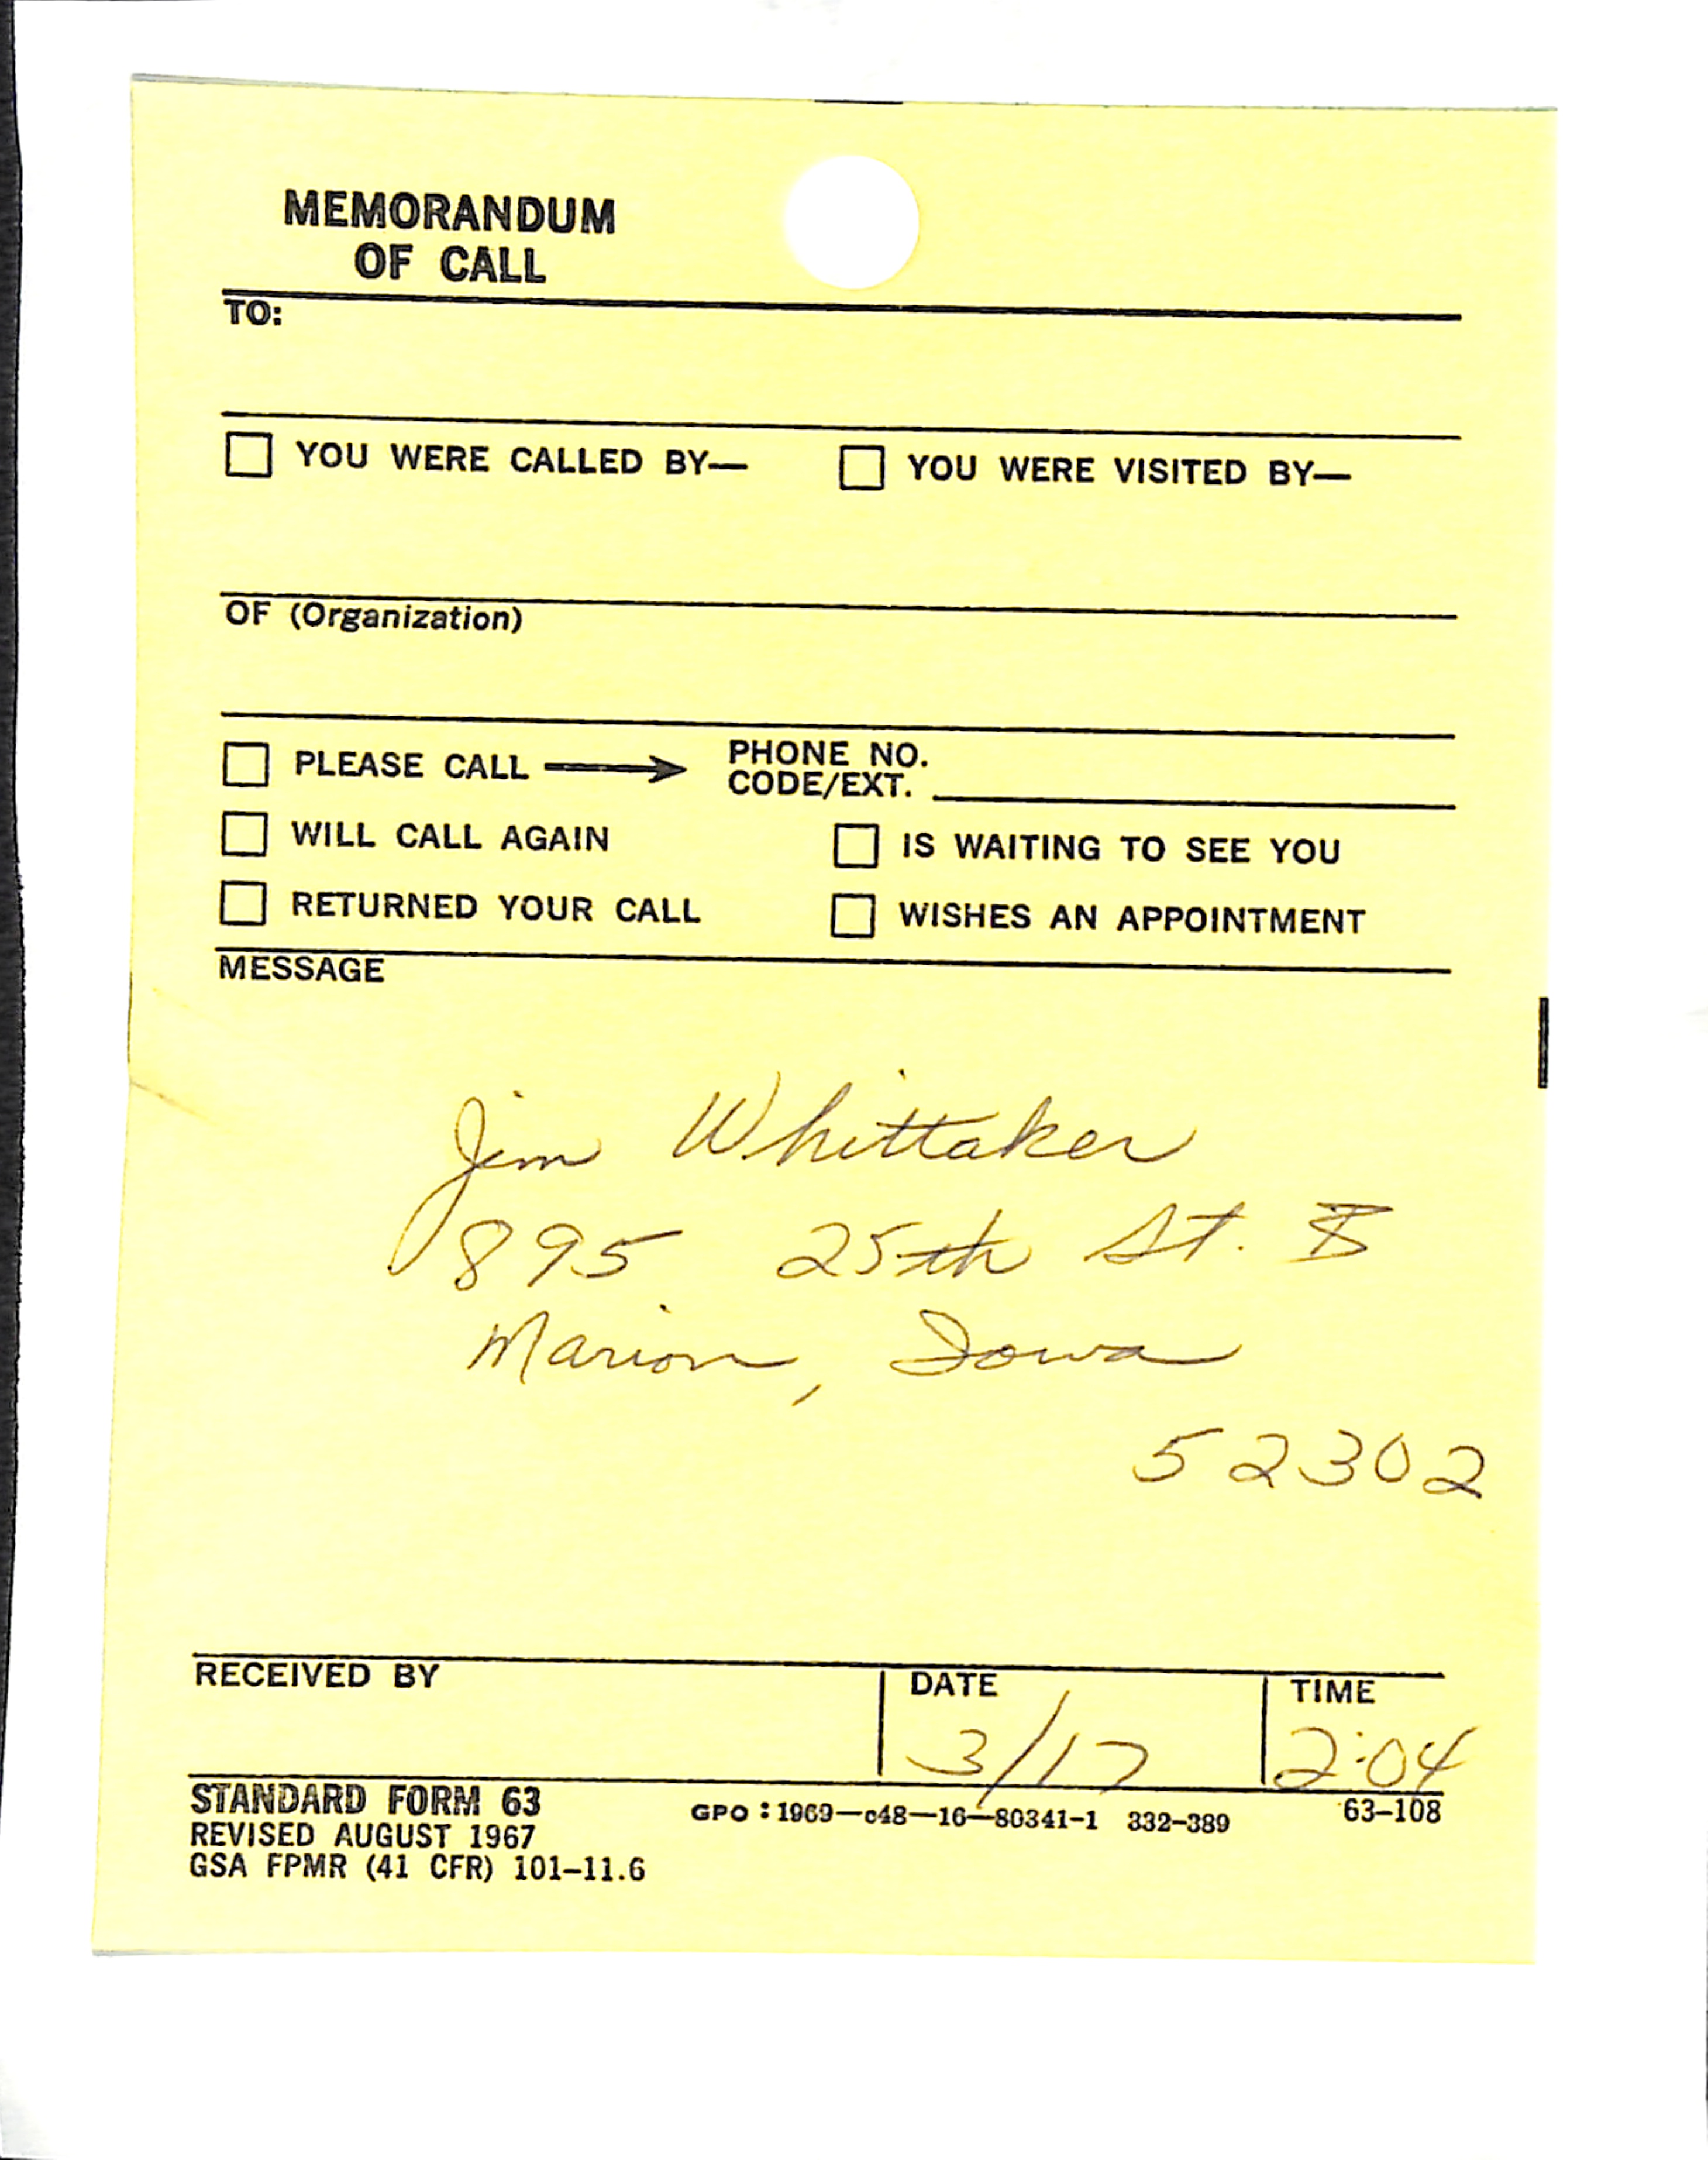 MEMORANDUM
OF CALL
TO:
YOU WERE CALLED BY— YOU WERE VISITED BY—
OF (Organization)
PLEASE CALL → PHONE NO.
CODE/EXT.
WILL CALL AGAIN IS WAITING TO SEE YOU
RETURNED YOUR CALL WISHES AN APPOINTMENT
MESSAGE
Jim Whittaker
895 25th St.
Marion, Iowa
52302
RECEIVED BY DATE TIME
3/17 2:04
STANDARD FORM 63
REVISED AUGUST 1967
GSA FPMR (41 CFR) 101-11.6
GPO : 1969—c48—16—80341-1 332-389 63-108